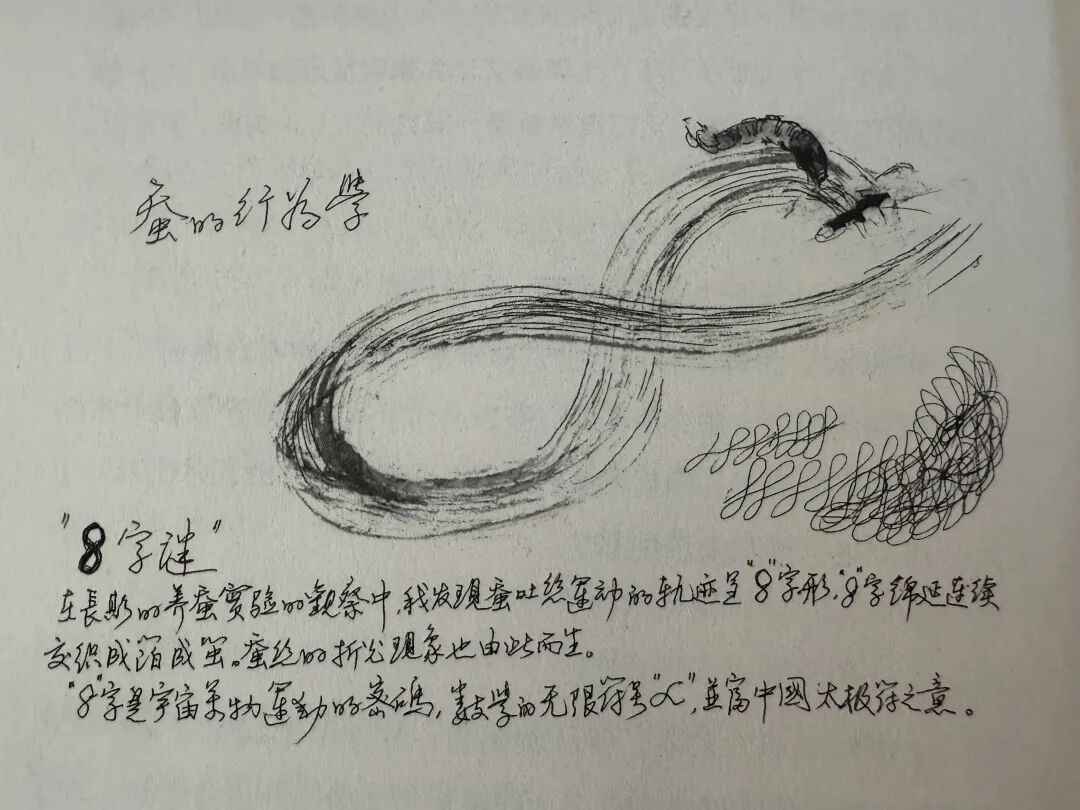 蚕的行为學
"8字谜"
在長期的养蚕實验的觀察中,我发現蚕吐丝運动的轨迹呈"8"字形,"8"字绵延连续
交织成箔成茧。蚕丝的折光現象也由此而生。
"8"字是宇宙万物運动的密碼,数學的无限符号"∝",並富中國太极符之意。